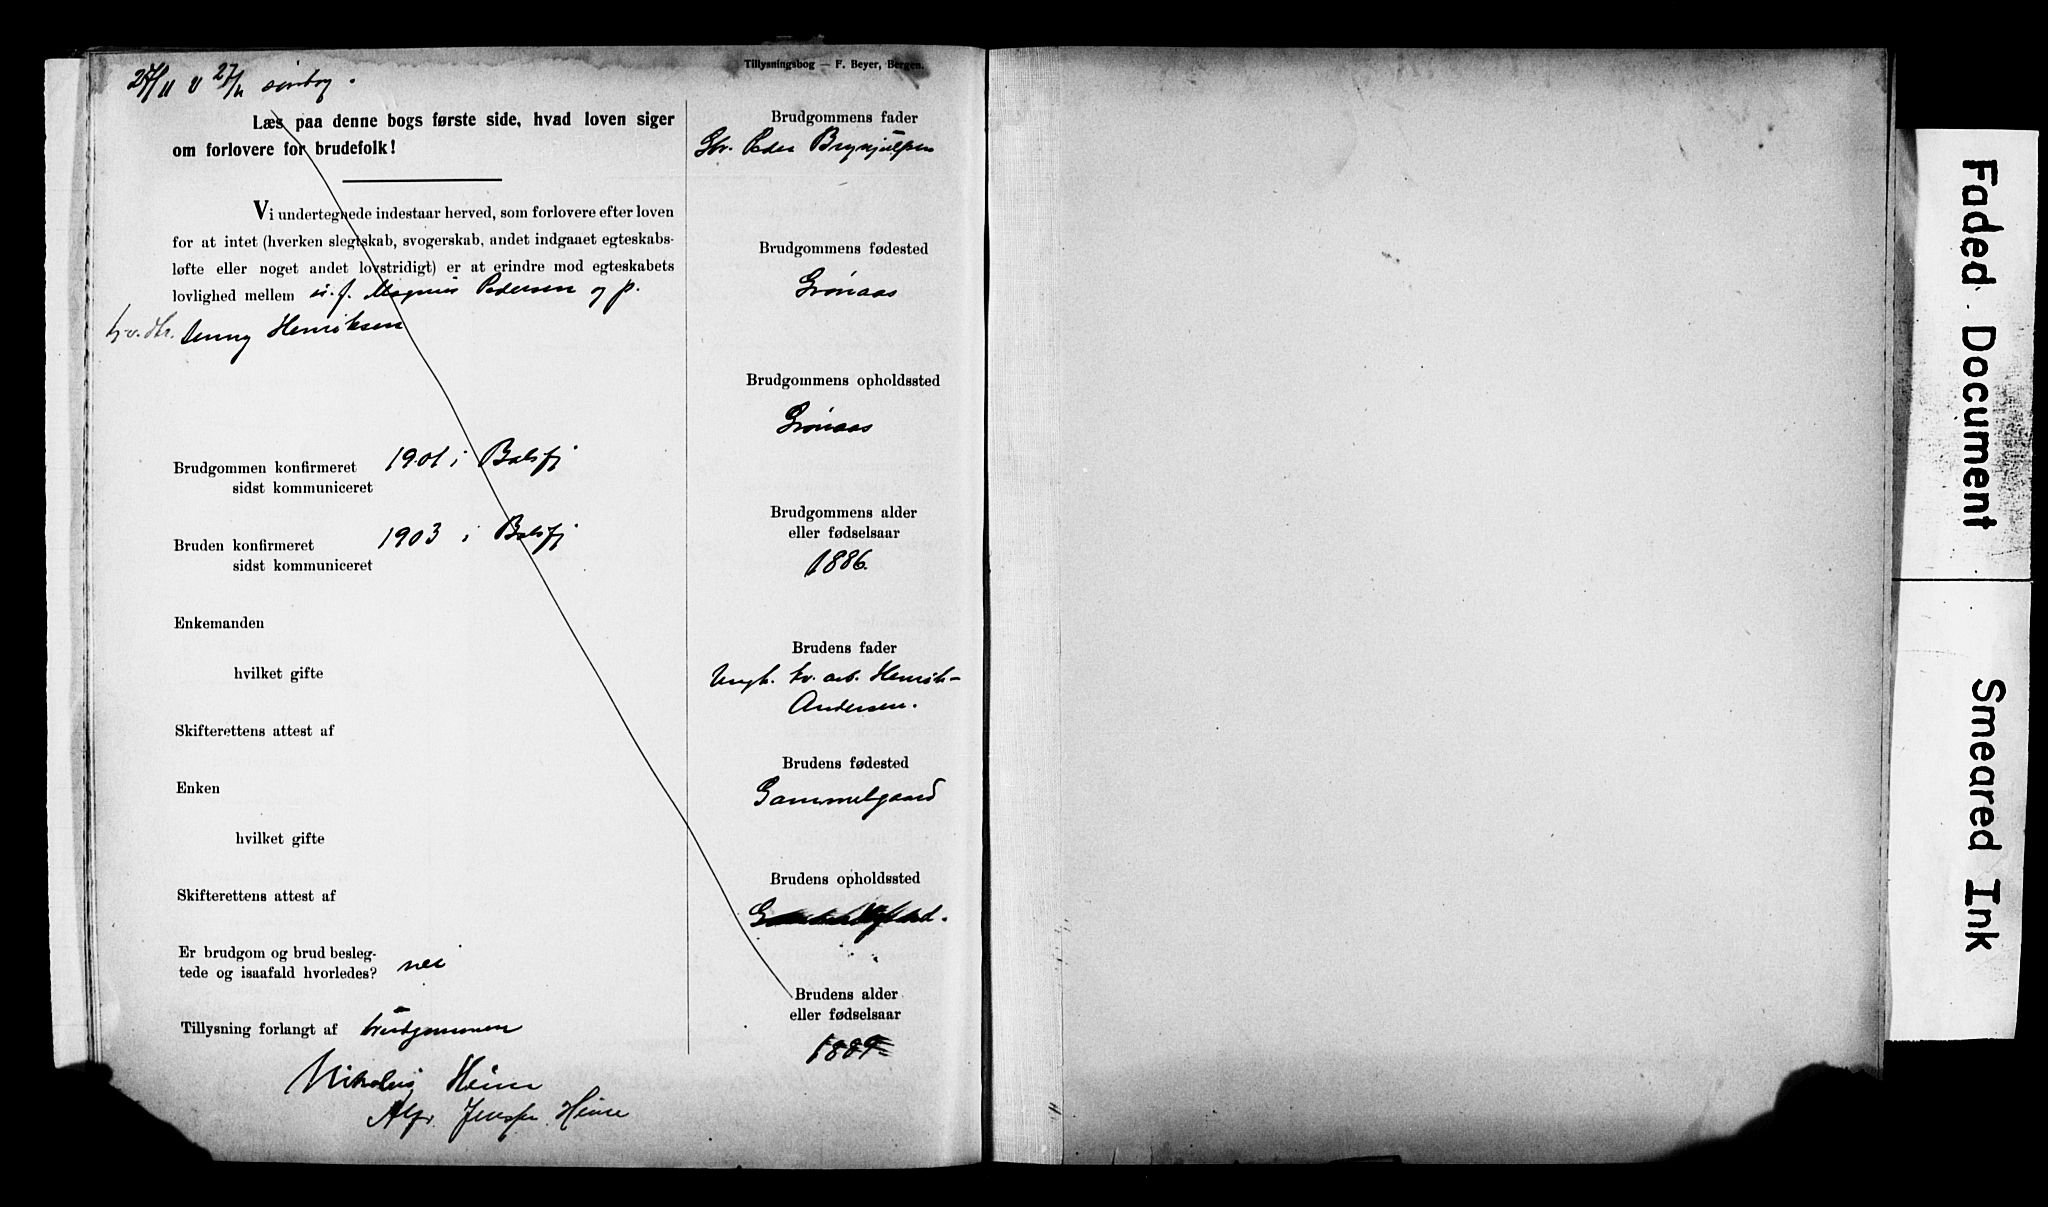 Tillysningsbog — F. Beyer, Bergen.
27/11 søndag.
Læs paa denne bogs første side, hvad loven siger
om forlovere for brudefolk!
Vi undertegnede indestaar herved, som forlovere efter loven
for at intet (hverken slegtskab, svogerskab, andet indgaaet egteskabs-
løfte eller noget andet lovstridigt) er at erindre mod egteskabets
lovlighed mellem u. f. Magnus Pedersen og p.
Jenny Henriksen
Brudgommen konfirmeret 1901 i Balsfj
sidst kommuniceret
Bruden konfirmeret 1903 i Balsfj
sidst kommuniceret
Enkemanden
hvilket gifte
Skifterettens attest af
Enken
hvilket gifte
Skifterettens attest af
Er brudgom og brud besleg-
tede og isaafald hvorledes? nei
Tillysning forlangt af brudgommen
Nikolai Heim
Brudgommens fader
Gbr. Peder Brynjulfsen
Brudgommens fødested
Grønaas
Brudgommens opholdssted
Grønaas
Brudgommens alder
eller fødselsaar
1886.
Brudens fader
Ungk. tv. arb. Henrik
Andersen.
Brudens fødested
Gammelgaard
Brudens opholdssted
Brudens alder
eller fødselsaar
1889
Faded Document
Smeared Ink